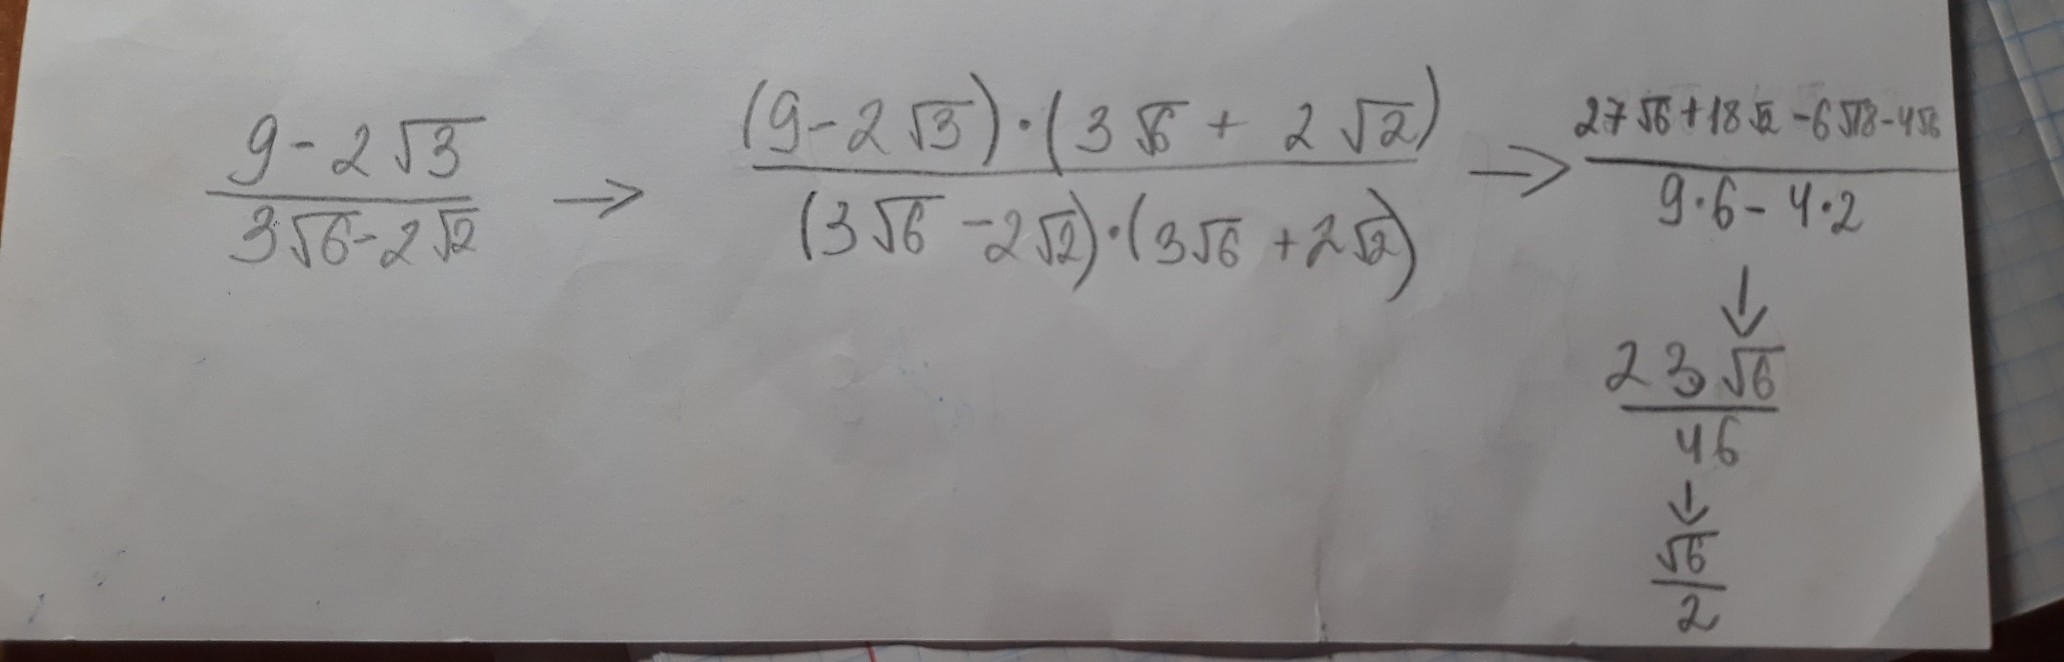 (9-2√3)/(3√6-2√2) → ((9-2√3)·(3√6+2√2))/((3√6-2√2)·(3√6+2√2)) → (27√6+18√2-6√18-4√6)/(9·6-4·2)
↓
23√6/46
↓
√6/2